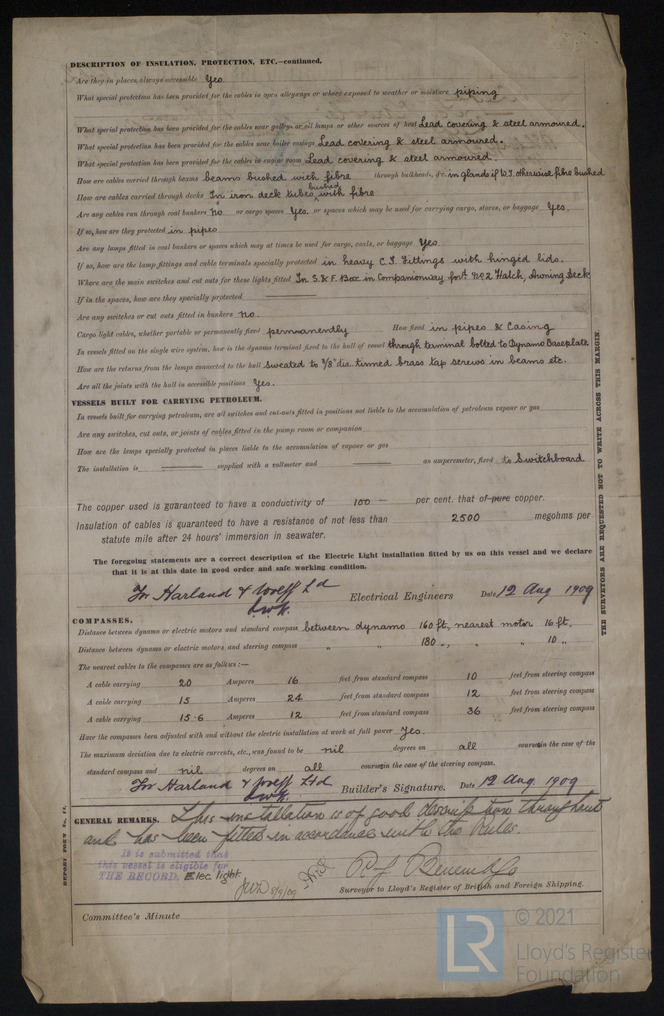 DESCRIPTION OF INSULATION, PROTECTION, ETC.—continued.
Are they in places always accessible Yes
What special protection has been provided for the cables in open alleyways or where exposed to weather or moisture piping
What special protection has been provided for the cables near galleys or oil lamps or other sources of heat Lead covering & steel armoured.
What special protection has been provided for the cables near boiler casings Lead covering & steel armoured.
What special protection has been provided for the cables in engine room Lead covering & steel armoured.
How are cables carried through beams beams bushed with fibre through bulkheads, &c. in glands if W.T. otherwise fibre bushed
How are cables carried through decks In iron deck tubes bushed with fibre
Are any cables run through coal bunkers no or cargo spaces Yes. or spaces which may be used for carrying cargo, stores, or baggage Yes.
If so, how are they protected in pipes
Are any lamps fitted in coal bunkers or spaces which may at times be used for cargo, coals, or baggage Yes
If so, how are the lamp fittings and cable terminals specially protected in heavy C.I. Fittings with hinged lids.
Where are the main switches and cut outs for these lights fitted In S. & F. Box in Companionway for'd No 2 Hatch, Awning Deck
If in the spaces, how are they specially protected
Are any switches or cut outs fitted in bunkers no.
Cargo light cables, whether portable or permanently fixed permanendly How fixed in pipes & Casing
In vessels fitted on the single wire system, how is the dynamo terminal fixed to the hull of vessel through terminal bolted to Dynamo Baseplate
How are the returns from the lamps connected to the hull sweated to 3/8" dia. tinned brass tap screws in beams etc.
Are all the joints with the hull in accessible positions Yes.
VESSELS BUILT FOR CARRYING PETROLEUM.
In vessels built for carrying petroleum, are all switches and cut-outs fitted in positions not liable to the accumulation of petroleum vapour or gas
Are any switches, cut outs, or joints of cables fitted in the pump room or companion
How are the lamps specially protected in places liable to the accumulation of vapour or gas
The installation is supplied with a voltmeter and an amperemeter, fixed to Switchboard
The copper used is guaranteed to have a conductivity of 100 per cent. that of pure copper.
Insulation of cables is guaranteed to have a resistance of not less than 2500 megohms per
statute mile after 24 hours' immersion in seawater.
The foregoing statements are a correct description of the Electric Light installation fitted by us on this vessel and we declare
that it is at this date in good order and safe working condition.
For Harland & Wolff Ld Electrical Engineers Date 12 Aug 1909
COMPASSES.
Distance between dynamo or electric motors and standard compass between dynamo 160 ft, nearest motor 16 ft.
Distance between dynamo or electric motors and steering compass " " 180 ", " " 10 "
The nearest cables to the compasses are as follows:—
A cable carrying 20 Amperes 16 feet from standard compass 10 feet from steering compass
A cable carrying 15 Amperes 24 feet from standard compass 12 feet from steering compass
A cable carrying 15·6 Amperes 12 feet from standard compass 36 feet from steering compass
Have the compasses been adjusted with and without the electric installation at work at full power Yes.
The maximum deviation due to electric currents, etc., was found to be nil degrees on all courses in the case of the
standard compass and nil degrees on all courses in the case of the steering compass.
For Harland & Wolff Ltd Builder's Signature. Date 12 Aug. 1909
GENERAL REMARKS. This installation is of good description throughout
and has been fitted in accordance with the Rules.
It is submitted that
this vessel is eligible for
THE RECORD. Elec light
Surveyor to Lloyd's Register of British and Foreign Shipping.
Committee's Minute
REPORT FORM No.
THE SURVEYORS ARE REQUESTED NOT TO WRITE ACROSS THIS MARGIN.
LR
© 2021
Lloyd's Register
Foundation